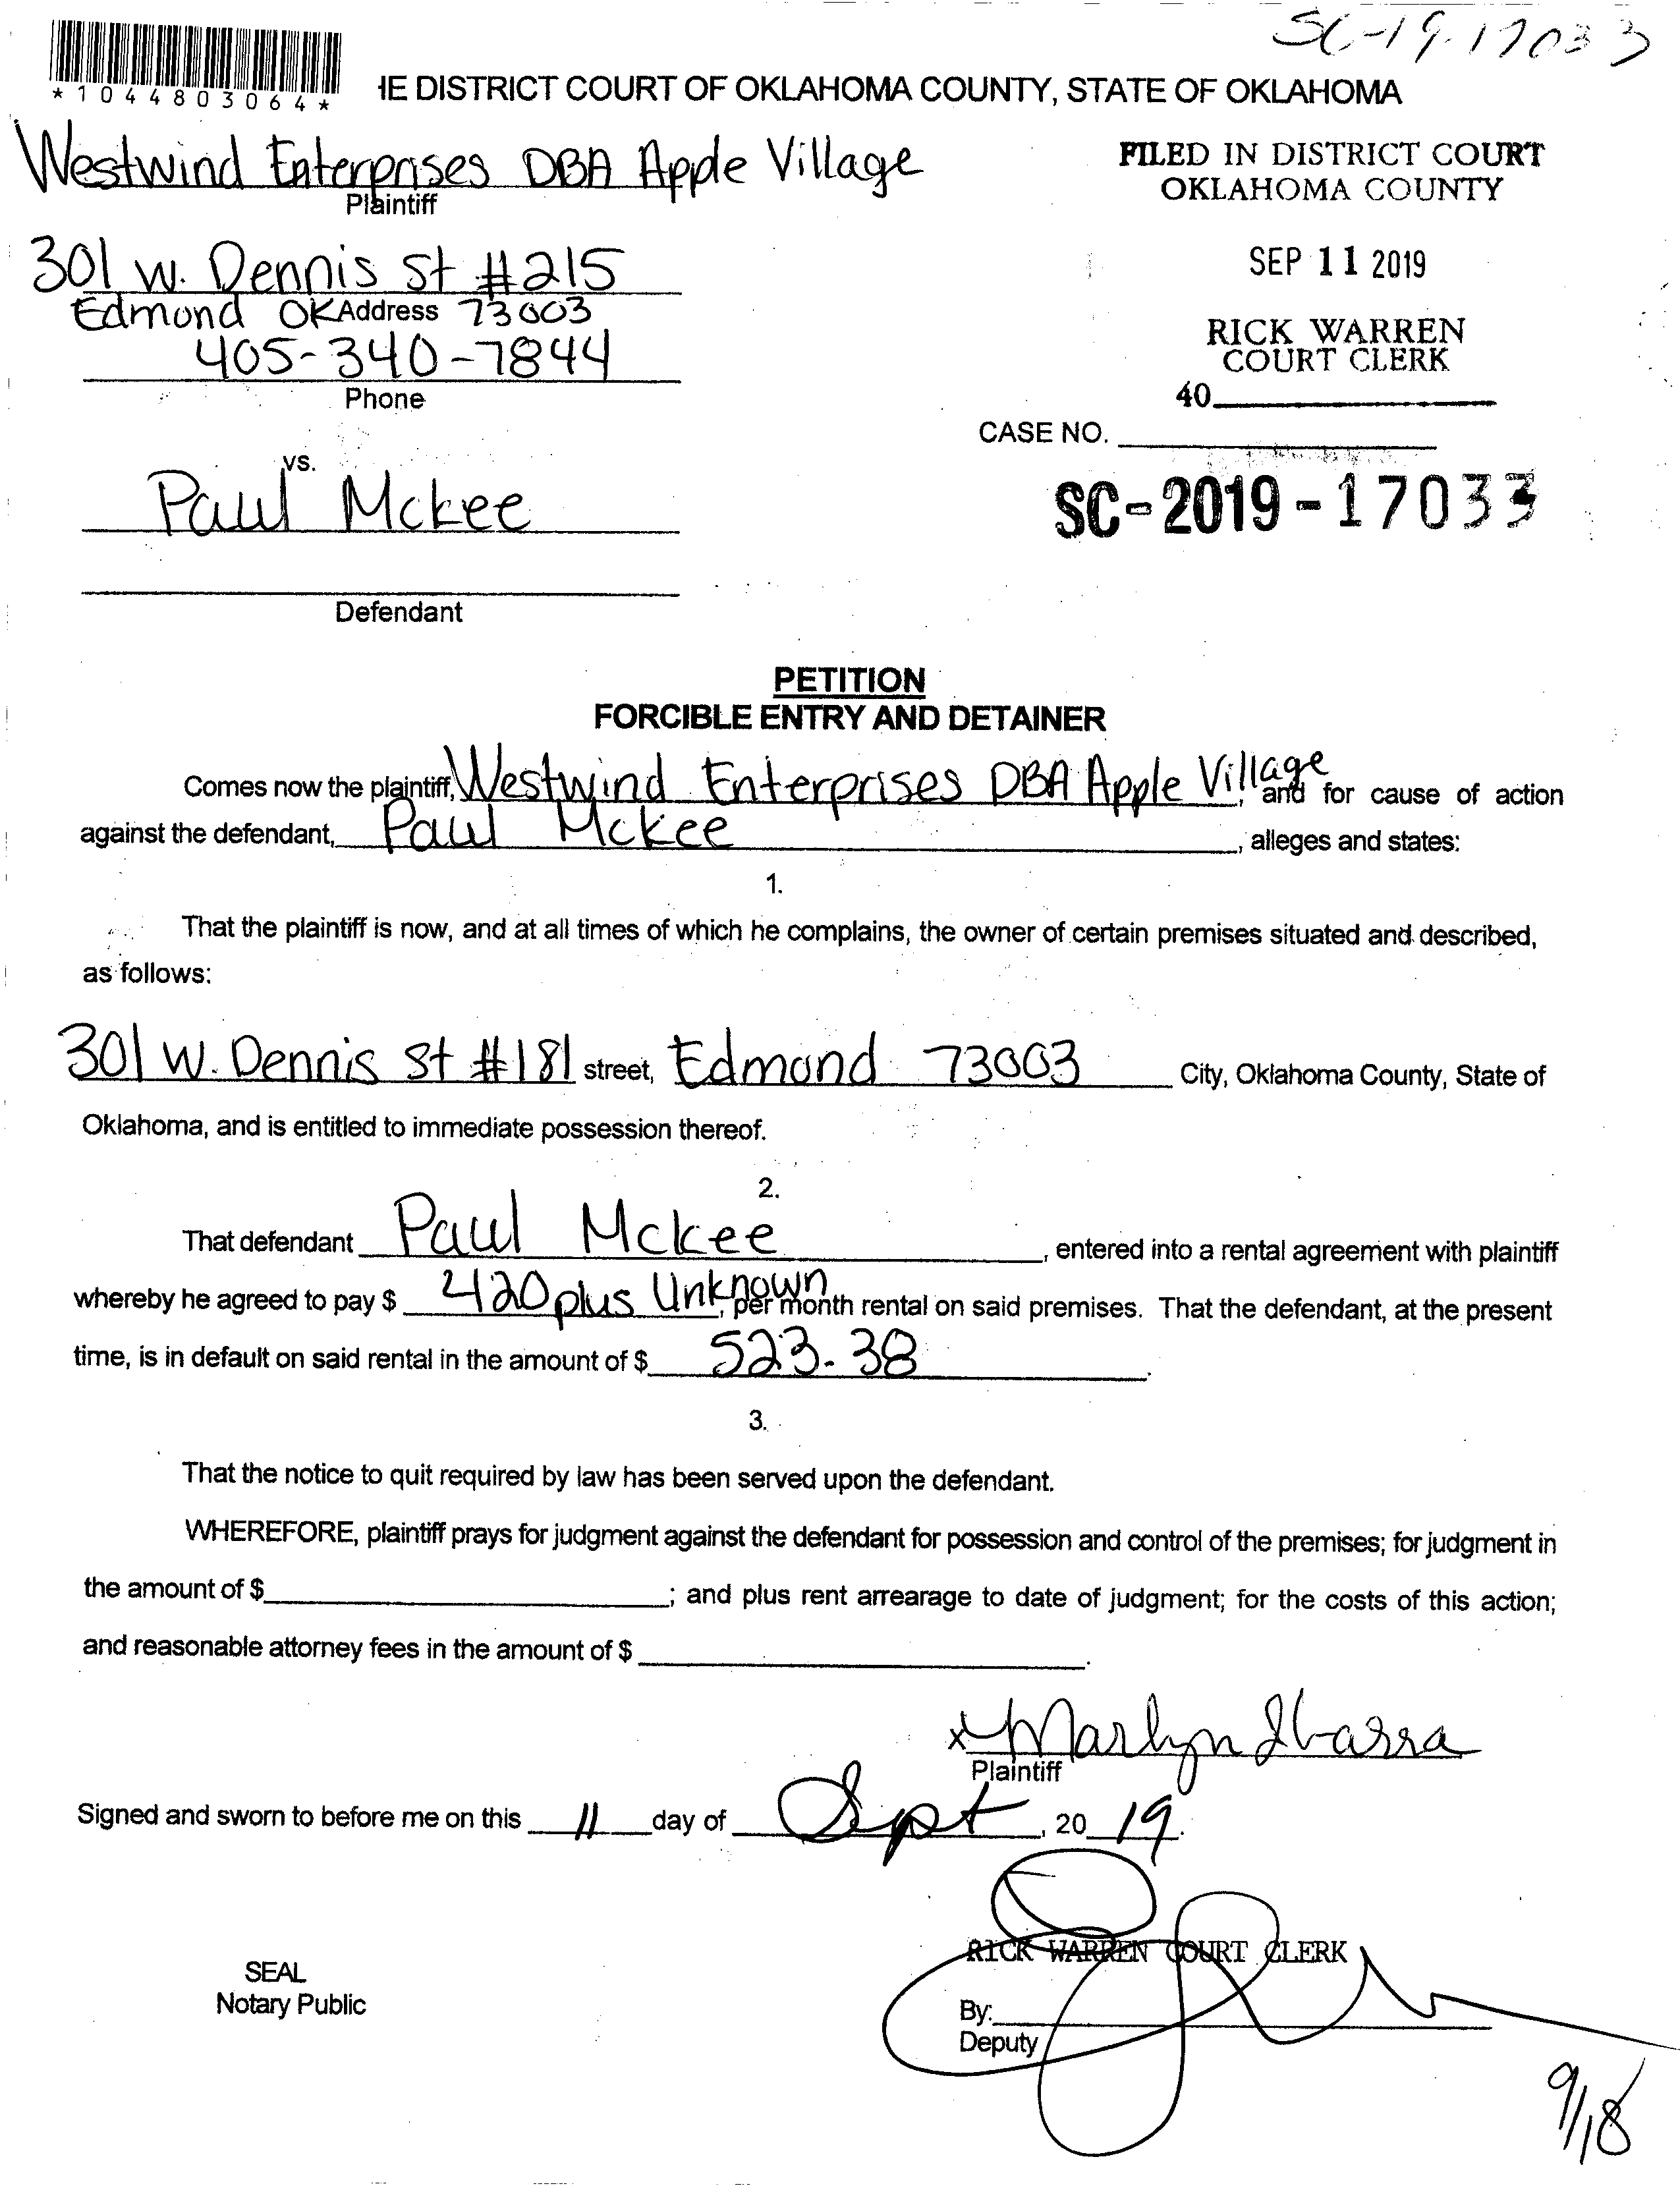 SC-19-17033
*1044803064*
HE DISTRICT COURT OF OKLAHOMA COUNTY, STATE OF OKLAHOMA
Westwind Enterprises DBA Apple Village
Plaintiff
FILED IN DISTRICT COURT
OKLAHOMA COUNTY
301 W. Dennis St #215
SEP 11 2019
Edmond OK Address 73003
405-340-7844
Phone
RICK WARREN
COURT CLERK
40
CASE NO.
vs.
Paul Mckee
SC-2019-17033
Defendant
PETITION
FORCIBLE ENTRY AND DETAINER
Comes now the plaintiff, Westwind Enterprises DBA Apple Village, and for cause of action
against the defendant, Paul Mckee, alleges and states:
1.
That the plaintiff is now, and at all times of which he complains, the owner of certain premises situated and described,
as follows:
301 W. Dennis St #181 street, Edmond 73003 City, Oklahoma County, State of
Oklahoma, and is entitled to immediate possession thereof.
2.
That defendant Paul Mckee, entered into a rental agreement with plaintiff
whereby he agreed to pay $ 420 plus Unknown, per month rental on said premises. That the defendant, at the present
time, is in default on said rental in the amount of $ 523.38.
3.
That the notice to quit required by law has been served upon the defendant.
WHEREFORE, plaintiff prays for judgment against the defendant for possession and control of the premises; for judgment in
the amount of $; and plus rent arrearage to date of judgment; for the costs of this action;
and reasonable attorney fees in the amount of $.
x Marlyn Ibarra
Plaintiff
Signed and sworn to before me on this 11 day of Sept, 20 19.
RICK WARREN COURT CLERK
SEAL
Notary Public
By:
Deputy
9/18